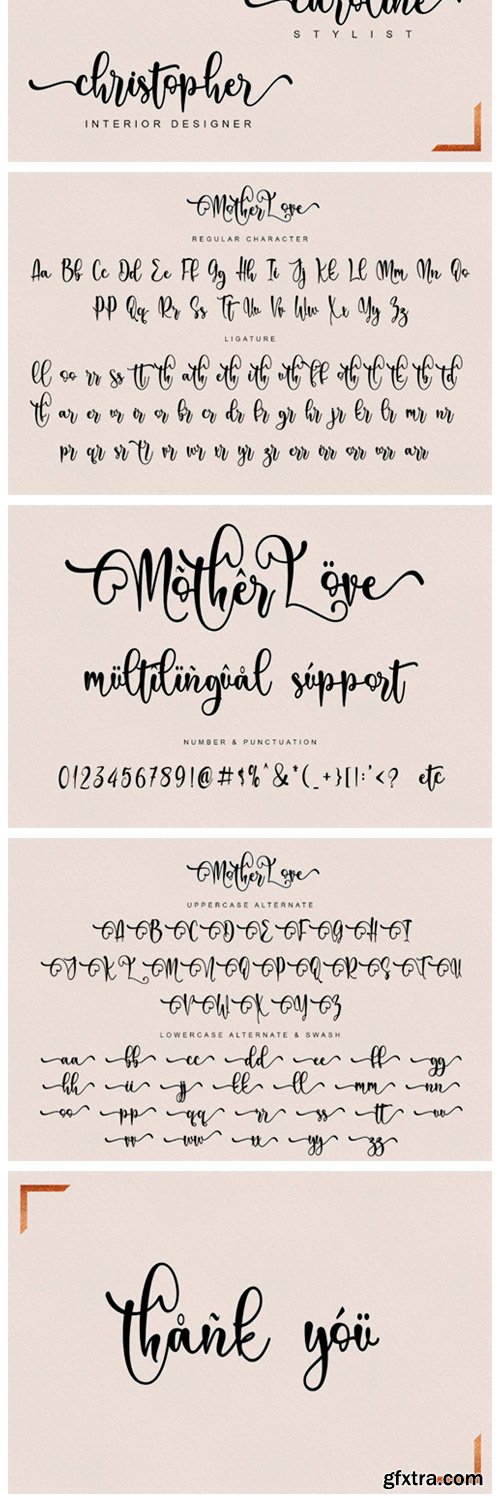 caroline
STYLIST
christopher
INTERIOR DESIGNER
Mother Love
REGULAR CHARACTER
Aa Bb Cc Dd Ee Ff Gg Hh Ii Jj Kk Ll Mm Nn Oo
PP Qq Rr Ss Tt Uu Vv Ww Xx Yy Zz
LIGATURE
ll oo rr ss tt th ath eth ith uth ff oth tl tb td
ar er ur ir or br cr dr fr gr hr jr kr lr mr nr
pr qr sr tr vr wr xr yr zr err irr orr urr arr
Mòthêr Löve
mültìlïñgûål súppört
NUMBER & PUNCTUATION
0123456789!@#$%^&*(_+}[|:'<? etc
Mother Love
UPPERCASE ALTERNATE
A B C D E F G H I
J K L M N O P Q R S T U
V W X Y Z
LOWERCASE ALTERNATE & SWASH
aa bb cc dd ee ff gg
hh ii jj kk ll mm nn
oo pp qq rr ss tt uu
vv ww xx yy zz
thåñk yóü
gfxtra.com